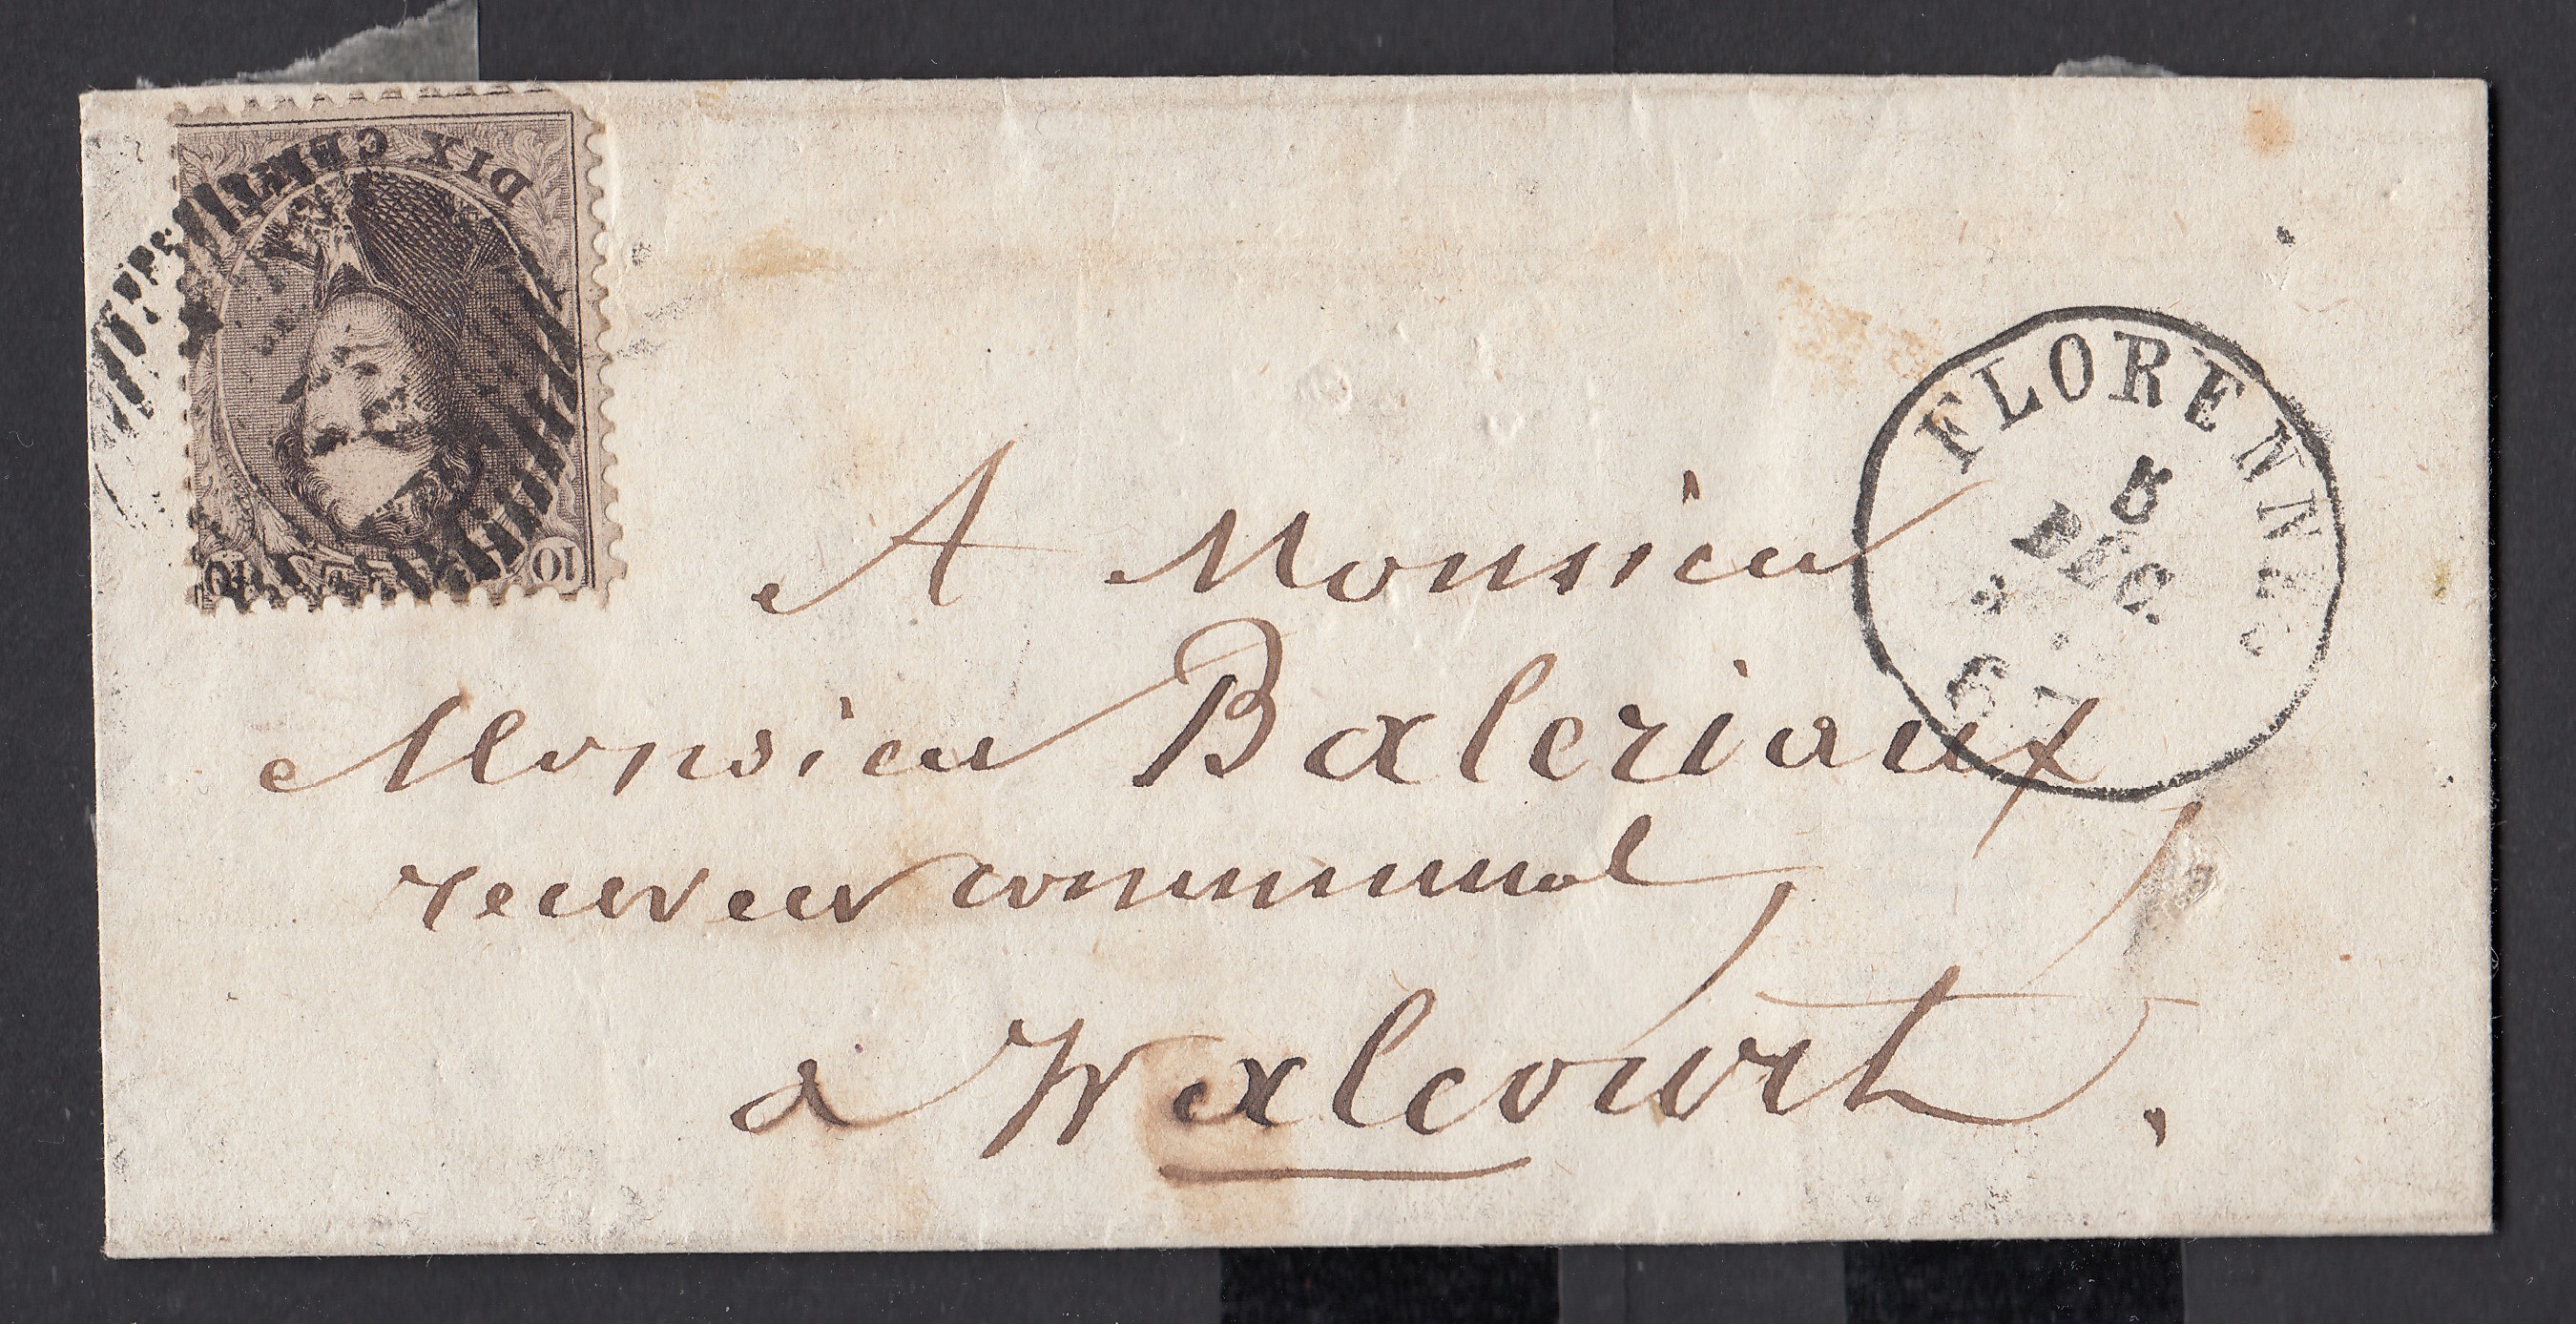 DIX CEN
10 10
FLORENNES
5
DEC
67
A Monsieur
Monsieur Baleriaux
receveur communal
a Walcourt.